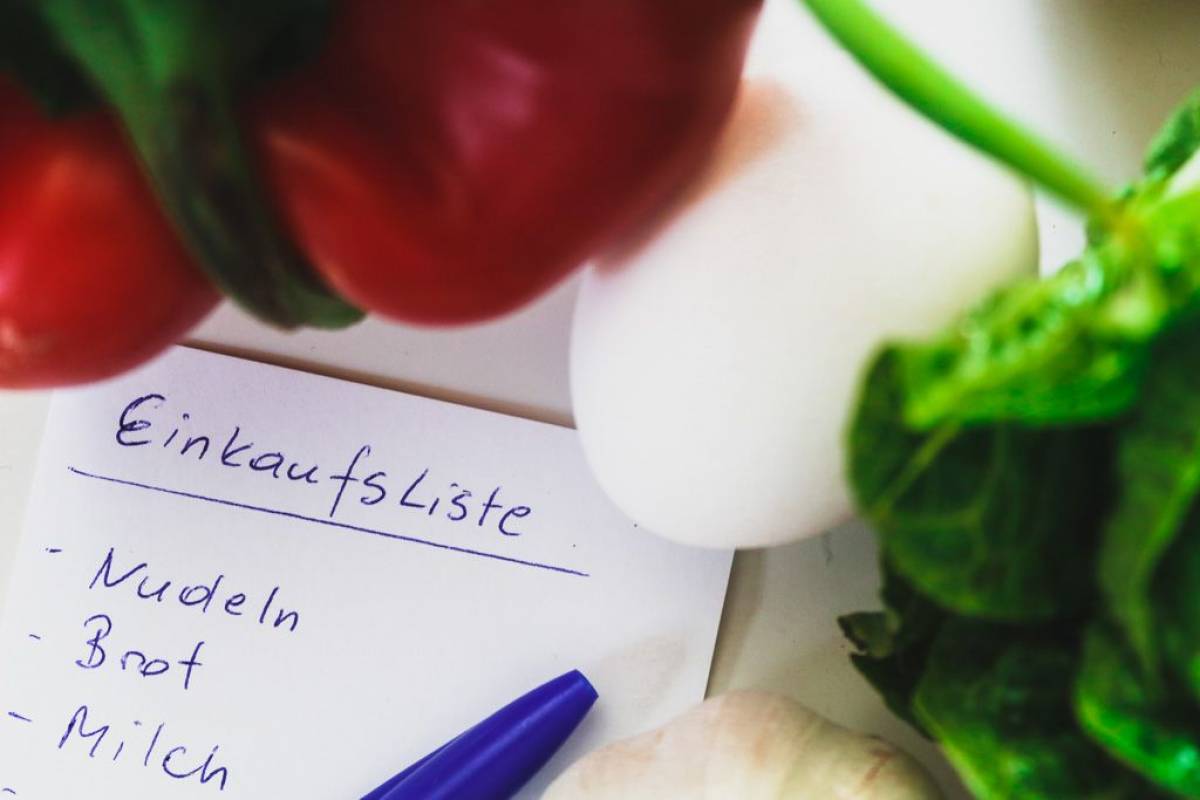 Einkaufsliste
- Nudeln
- Brot
- Milch
-